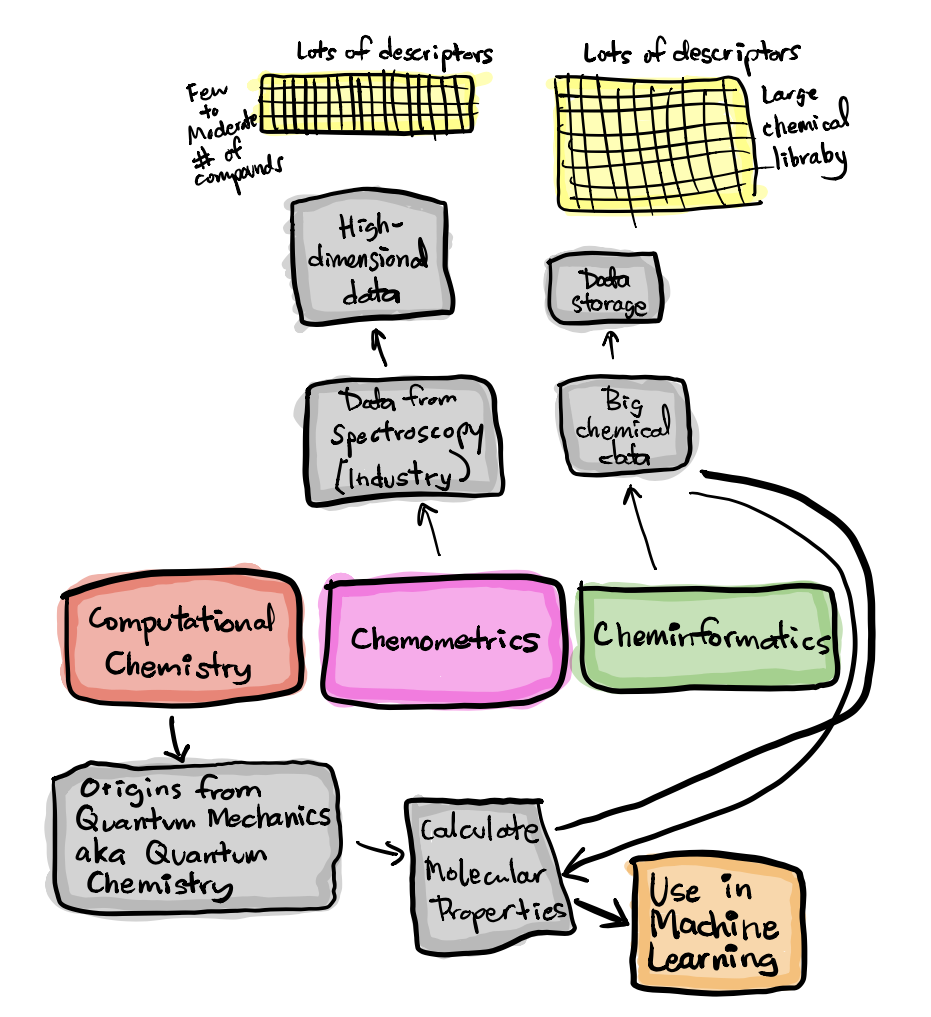 Lots of descriptors
Few
to
Moderate
# of
compounds
Lots of descriptors
Large
chemical
libraby
High-
dimensional
data
Data
storage
Data from
Spectroscopy
(Industry)
Big
chemical
data
Computational
Chemistry
Chemometrics
Cheminformatics
Origins from
Quantum Mechanics
aka Quantum
Chemistry
Calculate
Molecular
Properties
Use in
Machine
Learning